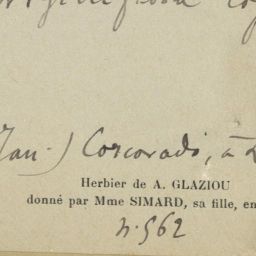 Jan.) Corcovado, à
Herbier de A. GLAZIOU
donné par Mme SIMARD, sa fille, en
n. 562